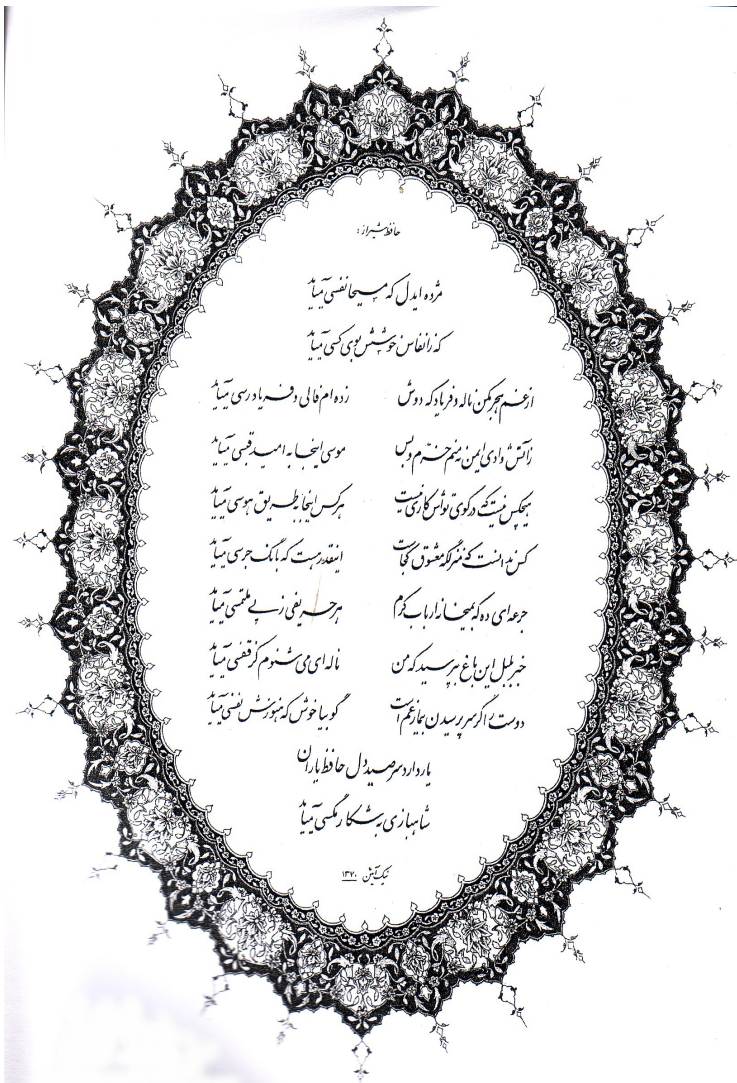 حافظ شیراز :
مژده ایدل که مسیحا نفسی میآید
که ز انفاس خوشش بوی کسی میآید
از غم هجر مکن ناله و فریاد که دوش زده ام فالی و فریاد رسی میآید
ز آتش وادی ایمن نه منم خرم و بس موسی اینجا به امید قبسی میآید
هیچکس نیست که در کوی تواش کاری نیست هر کس اینجا بطریق هوسی میآید
کس ندانست که منزلگه معشوق کجاست اینقدر هست که بانگ جرسی میآید
جرعه ای ده که بمیخانه ارباب کرم هر حریفی ز پی ملتمسی میآید
خبر بلبل این باغ بپرسید که من ناله ای می شنوم کز قفسی میآید
دوست را گر سر پرسیدن بیمار غم است گو بیا خوش که هنوزش نفسی میآید
یار دارد سر صید دل حافظ یاران
شاهبازی به شکار مگسی میآید
نیک آئین ۱۳۷۰